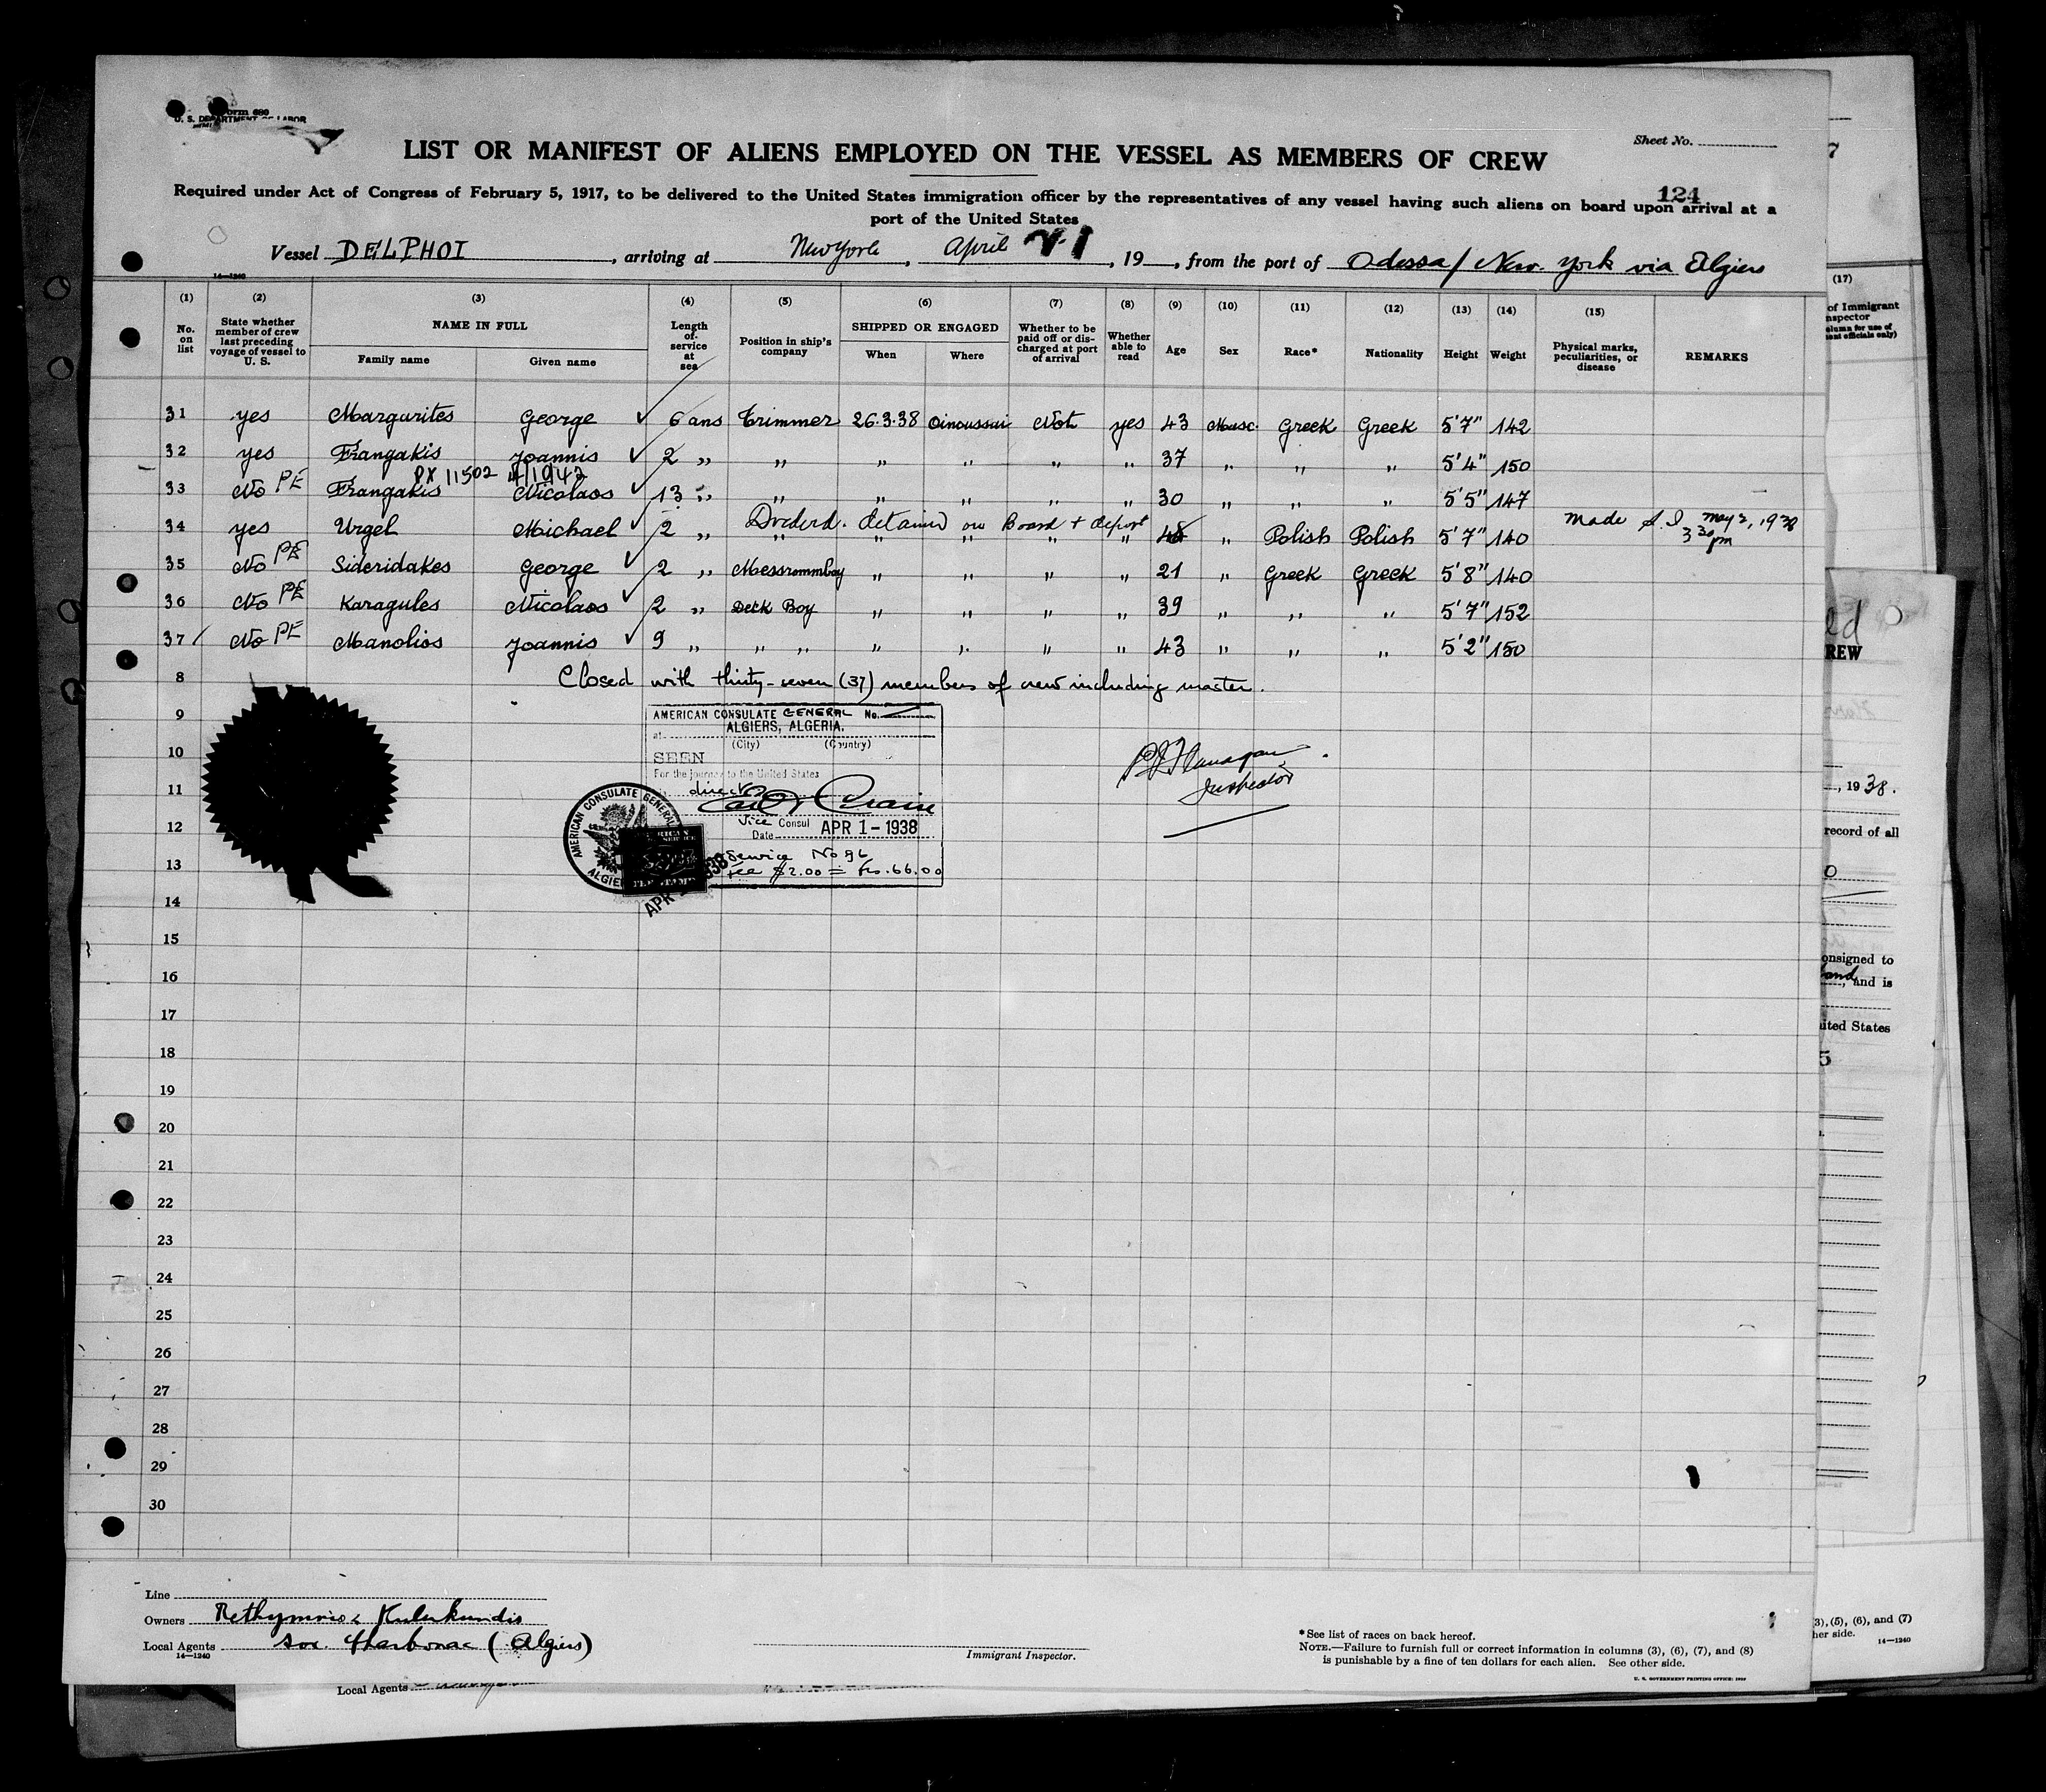 Form 680
U. S. DEPARTMENT OF LABOR
Sheet No.
LIST OR MANIFEST OF ALIENS EMPLOYED ON THE VESSEL AS MEMBERS OF CREW
124
Required under Act of Congress of February 5, 1917, to be delivered to the United States immigration officer by the representatives of any vessel having such aliens on board upon arrival at a
port of the United States
Vessel DELPHOI, arriving at New York, April, 19, from the port of Odessa / New York via Algiers
14—1240
(1) (2) (3) (4) (5) (6) (7) (8) (9) (10) (11) (12) (13) (14) (15) (17)
No. on list
State whether member of crew last preceding voyage of vessel to U. S.
NAME IN FULL
Family name
Given name
Length of service at sea
Position in ship's company
SHIPPED OR ENGAGED
When
Where
Whether to be paid off or discharged at port of arrival
Whether able to read
Age
Sex
Race*
Nationality
Height
Weight
Physical marks, peculiarities, or disease
REMARKS
of Immigrant
31 yes Margurites George ✓ 6 ans Trimmer 26.3.38 Oinoussai Not yes 43 Masc. Greek Greek 5'7" 142
32 yes Frangakis Joannis ✓ 2 " " " " " " 37 " " " 5'4" 150
PX 11502
33 No PE Frangakis Nicolaos ✓ 13 " " " " " " 30 " " " 5'5" 147
detained on Board + deport
made S.I. May 2, 1938
3 30 pm
34 yes Urgel Michael ✓ 2 " " " " " " 48 " Polish Polish 5'7" 140
35 No PE Sideridakes George ✓ 2 " Messroomboy " " " " 21 " Greek Greek 5'8" 140
36 No PE Karagules Nicolaos ✓ 2 " Deck Boy " " " " 39 " " " 5'7" 152
37 No PE Manolios Joannis ✓ 9 " " " " " " " 43 " " " 5'2" 150
8 Closed with thirty-seven (37) members of crew including master.
9
10
11
12
13
14
15
16
17
18
19
20
21
22
23
24
25
26
27
28
29
30
AMERICAN CONSULATE GENERAL No.
at ALGIERS, ALGERIA.
(City) (Country)
SEEN
For the journey to the United States
direct
Vice Consul
Date APR 1 - 1938
Service No 96
Fee $2.00 = frs. 66.00
AMERICAN CONSULATE GENERAL
Flanagan
Inspector
Line
Owners Rethymnis & Kulukundis
Local Agents Soc. (Algiers)
14—1240
Immigrant Inspector.
*See list of races on back hereof.
NOTE.—Failure to furnish full or correct information in columns (3), (6), (7), and (8)
is punishable by a fine of ten dollars for each alien. See other side.
U. S. GOVERNMENT PRINTING OFFICE
Local Agents
REW
, 1938.
record of all
onsigned to
and is
ited States
(3), (5), (6), and (7)
her side.
14—1240